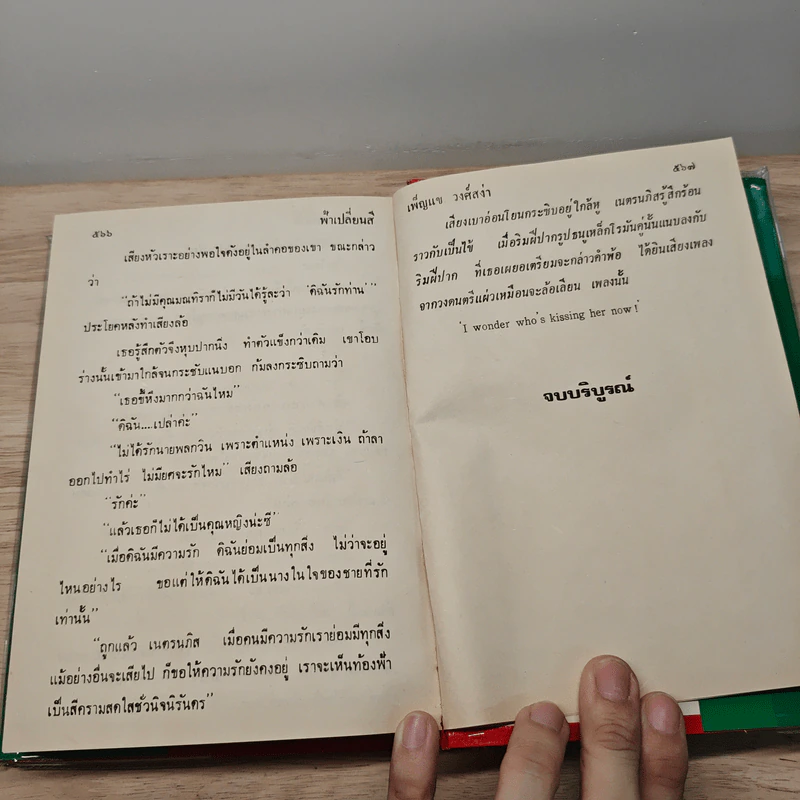 ๕๖๖ ฟ้าเปลี่ยนสี
เสียงหัวเราะอย่างพอใจดังอยู่ในลำคอของเขา ขณะกล่าว
ว่า
“ถ้าไม่มีคุณมณทิราก็ไม่มีวันได้รู้ละว่า ‘ดิฉันรักท่าน’”
ประโยคหลังทำเสียงล้อ
เธอรู้สึกตัวจึงหุบปากนิ่ง ทำตัวแข็งกว่าเดิม เขาโอบ
ร่างนั้นเข้ามาใกล้จนกระชับแนบอก ก้มลงกระซิบถามว่า
“เธอขี้หึงมากกว่าฉันไหม”
“ดิฉัน....เปล่าค่ะ”
“ไม่ได้รักนายพลกวิน เพราะตำแหน่ง เพราะเงิน ถ้าลา
ออกไปทำไร่ ไม่มียศจะรักไหม” เสียงถามล้อ
“รักค่ะ”
“แล้วเธอก็ไม่ได้เป็นคุณหญิงน่ะซี”
“เมื่อดิฉันมีความรัก ดิฉันย่อมเป็นทุกสิ่ง ไม่ว่าจะอยู่
ไหนอย่างไร ขอแต่ให้ดิฉันได้เป็นนางในใจของชายที่รัก
เท่านั้น”
“ถูกแล้ว เนตรนภิส เมื่อคนมีความรักเราย่อมมีทุกสิ่ง
แม้อย่างอื่นจะเสียไป ก็ขอให้ความรักยังคงอยู่ เราจะเห็นท้องฟ้า
เป็นสีครามสดใสชั่วนิจนิรันดร”
เพ็ญแข วงศ์สง่า ๕๖๗
เสียงเบาอ่อนโยนกระซิบอยู่ใกล้หู เนตรนภิสรู้สึกร้อน
ราวกับเป็นไข้ เมื่อริมฝีปากรูปธนูเหล็กไรมันคู่นั้นแนบลงกับ
ริมฝีปาก ที่เธอเผยอเตรียมจะกล่าวคำพ้อ ได้ยินเสียงเพลง
จากวงดนตรีแผ่วเหมือนจะล้อเลียน เพลงนั้น
‘I wonder who's kissing her now!’
จบบริบูรณ์